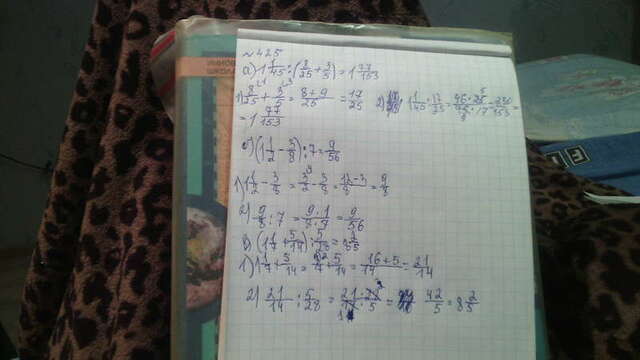 № 425
а) 1 1/45 : (8/25 + 3/5) = 1 77/153
1) 8/25 + 3/5 = 8+9/25 = 17/25 2) 1 1/45 : 17/25 = 46·25/45·17 = 230/153 =
= 1 77/153
б) (1 1/2 - 3/8) : 7 = 9/56
1) 1 1/2 - 3/8 = 3/2 - 3/8 = 12-3/8 = 9/8
2) 9/8 : 7 = 9·1/8·7 = 9/56
в) (1 1/7 + 5/14) : 5/28 =
1) 1 1/7 + 5/14 = 8/7 + 5/14 = 16+5/14 = 21/14
2) 21/14 : 5/28 = 21·28/14·5 = 42/5 = 8 2/5